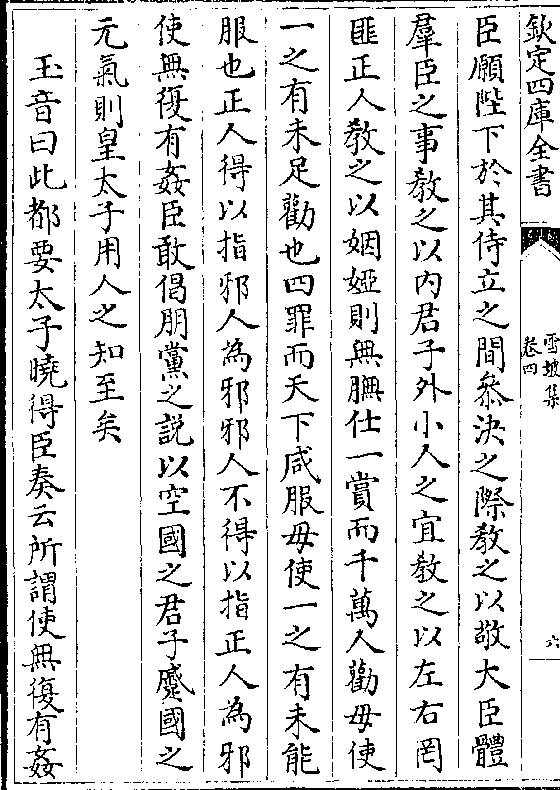 欽定四庫全書
雪坡集
卷四
六
臣願陛下於其侍立之間叅決之際教之以敬大臣體
羣臣之事教之以内君子外小人之宜教之以左右罔
匪正人教之以姻婭則無膴仕一賞而千萬人勸毋使
一之有未足勸也四罪而天下咸服毋使一之有未能
服也正人得以指邪人為邪邪人不得以指正人為邪
使無復有姦臣敢倡朋黨之説以空國之君子蹙國之
元氣則皇太子用人之知至矣
玉音曰此都要太子曉得臣奏云所謂使無復有姦